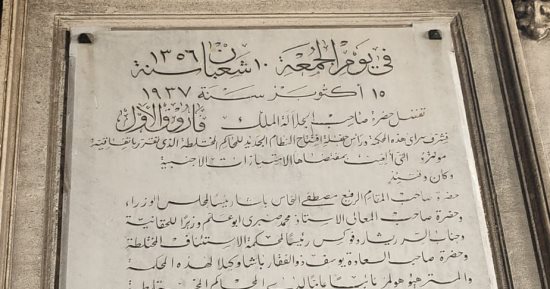 في يوم الجمعة ١٠ شعبان سنة ١٣٥٦
١٥ أكتوبر سنة ١٩٣٧
تفضل حضرة صاحب الجلالة الملك فاروق الأول
فشرف سراي هذه المحكمة ورأس حفلة افتتاح النظام الجديد للمحاكم المختلطة الذي تقرر باتفاقية
مونترو التي ألغيت بمقتضاها الامتيازات الأجنبية
وكان وقتئذ
حضرة صاحب المقام الرفيع مصطفى النحاس باشا رئيسا لمجلس الوزراء،
وحضرة صاحب المعالي الاستاذ محمد صبري ابو علم وزيرا للحقانية
وجناب السر ريشار وفوكس رئيسا لمحكمة الاستئناف المختلطة
وحضرة صاحب السعادة يوسف ذو الفقار باشا وكيلا لهذه المحكمة
والمستر هيو هولمز نائبا